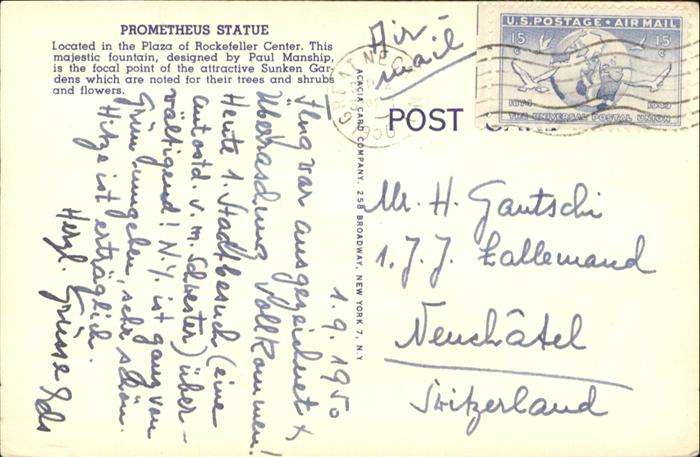 PROMETHEUS STATUE
Located in the Plaza of Rockefeller Center. This
majestic fountain, designed by Paul Manship,
is the focal point of the attractive Sunken Gar-
dens which are noted for their trees and shrubs
and flowers.
Air-
mail
U.S. POSTAGE · AIR MAIL
15 c 15 c
1874 1949
THE UNIVERSAL POSTAL UNION
GREAT NECK
POST CARD
ACACIA CARD COMPANY, 258 BROADWAY, NEW YORK 7, N.Y.
1.9.1950
Flug war ausgezeichnet &
Überraschung vollkommen!
Heute 1. Stadtbesuch (eine
autostd. v. m. Schwester) über-
wältigend! N.Y. ist ganz von
Grün umgeben, sehr schön.
Hitze ist erträglich.
Herzl. Grüsse
Mr. H. Gautschi
1. J. J. Lallemand
Neuchâtel
Switzerland